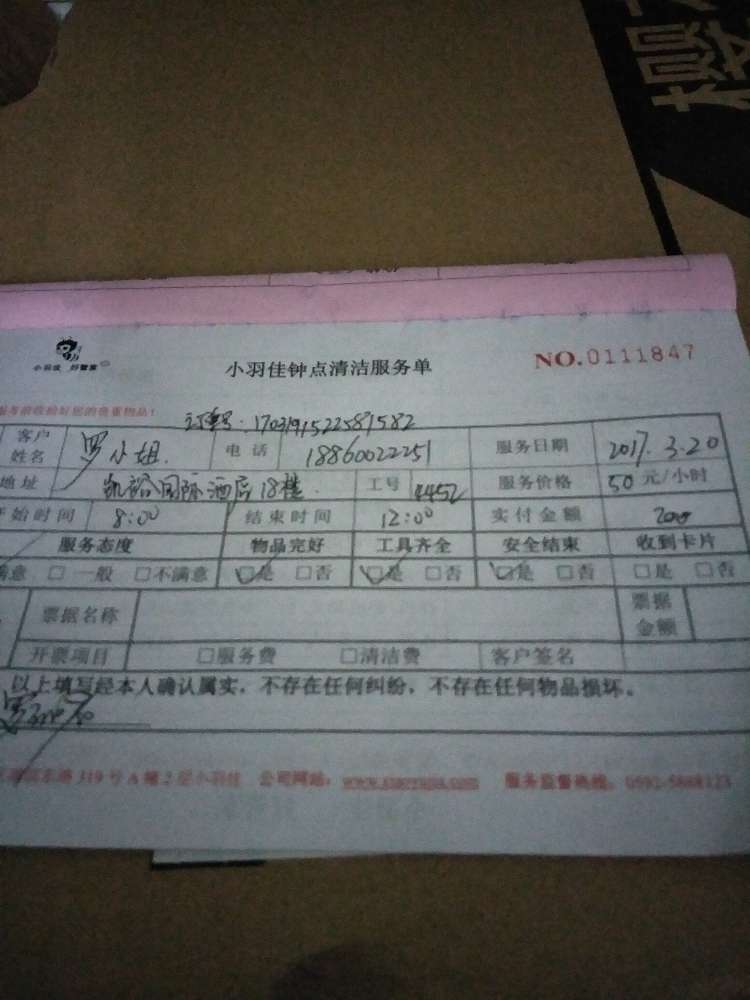 小羽佳 好管家
小羽佳钟点清洁服务单
NO.0111847
订单号:1703191522581582
客户姓名 罗小姐 电话 18860022251 服务日期 2017.3.20
地址 凯裕国际酒店18楼 工号 4452 服务价格 50元/小时
开始时间 8:00 结束时间 12:00 实付金额 200
服务态度 物品完好 工具齐全 安全结束 收到卡片
满意 □一般 □不满意 ☑是 □否 ☑是 □否 ☑是 □否 □是 □否
票据名称 票据金额
开票项目 □服务费 □清洁费 客户签名
以上填写经本人确认属实,不存在任何纠纷,不存在任何物品损坏。
319号A幢2层小羽佳 公司网站: 服务监督热线:0592-5888123